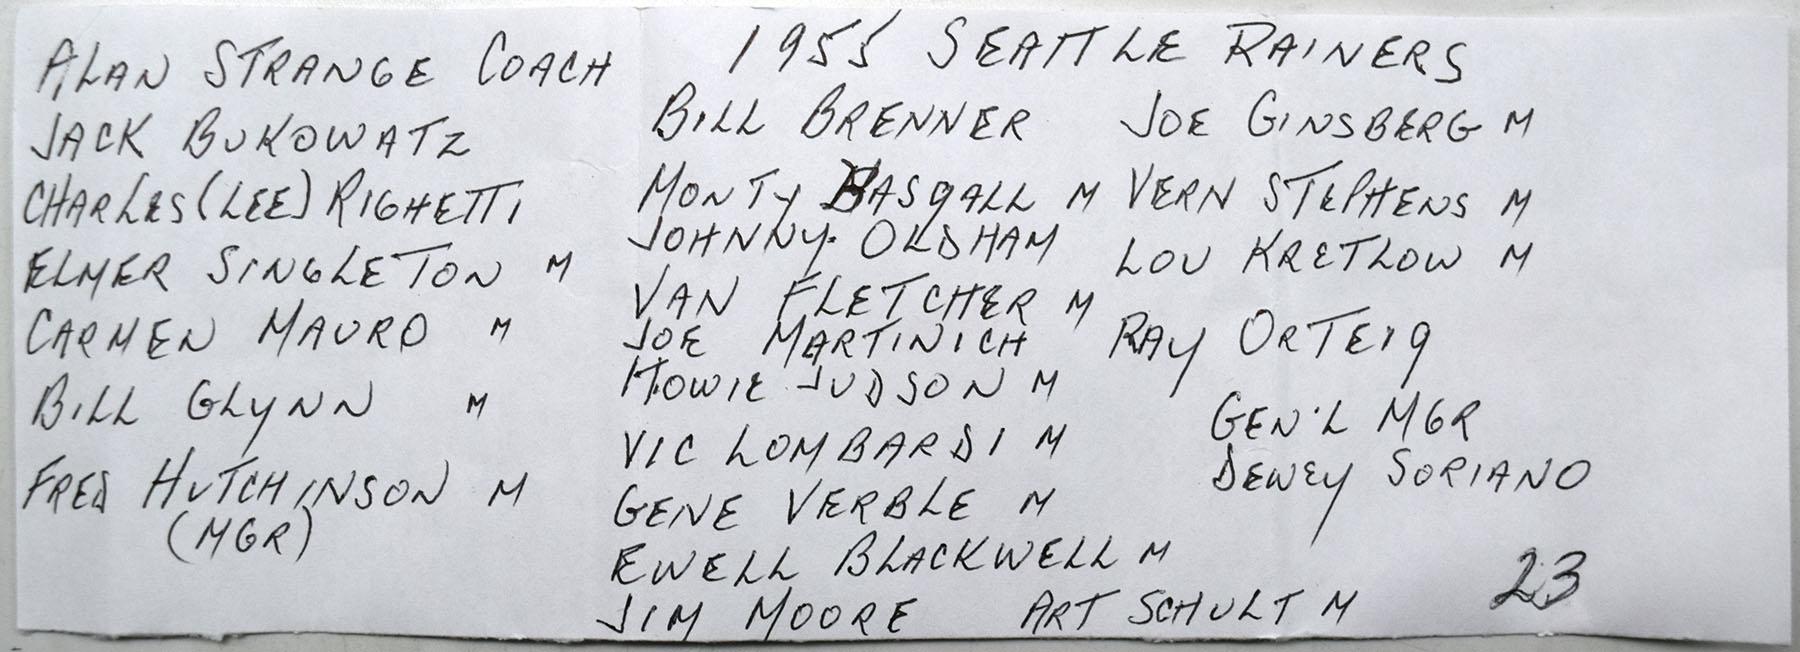 1955 SEATTLE RAINERS
ALAN STRANGE COACH
JACK BUKOWATZ
CHARLES (LEE) RIGHETTI
ELMER SINGLETON M
CARMEN MAURO M
BILL GLYNN M
FRED HUTCHINSON M
(MGR)
BILL BRENNER
MONTY BASGALL M
JOHNNY OLDHAM
VAN FLETCHER M
JOE MARTINICH
HOWIE JUDSON M
VIC LOMBARDI M
GENE VERBLE M
EWELL BLACKWELL M
JIM MOORE
ART SCHULT M
JOE GINSBERG M
VERN STEPHENS M
LOU KRETLOW M
RAY ORTEIG
GEN'L MGR
DEWEY SORIANO
23